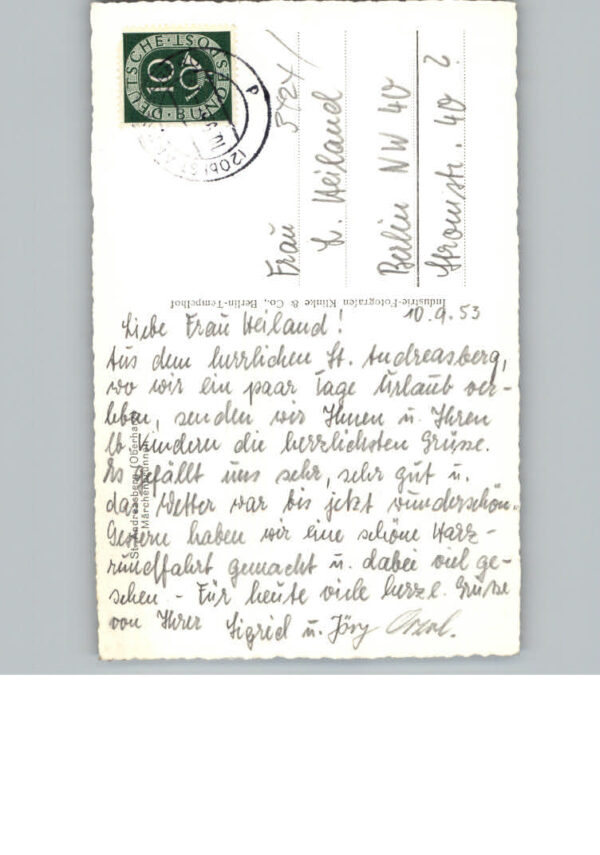 DEUTSCHE BUNDESPOST
10
(20b) ST. ANDREASBERG
Frau
L. Weiland
Berlin NW 40
Stromstr. 40
Industrie-Fotografen Klinke & Co., Berlin-Tempelhof
St. Andreasberg (Oberharz)
10.9.53
Liebe Frau Weiland!
Aus dem herrlichen St. Andreasberg,
wo wir ein paar Tage Urlaub ver-
leben, senden wir Ihnen u. Ihren
lb. Kindern die herzlichsten Grüsse.
Es gefällt uns sehr, sehr gut u.
das Wetter war bis jetzt wunderschön.
Gestern haben wir eine schöne Harz-
rundfahrt gemacht u. dabei viel ge-
sehen - Für heute viele herzl. Grüße
von Ihrer Sigrid u. Jörg